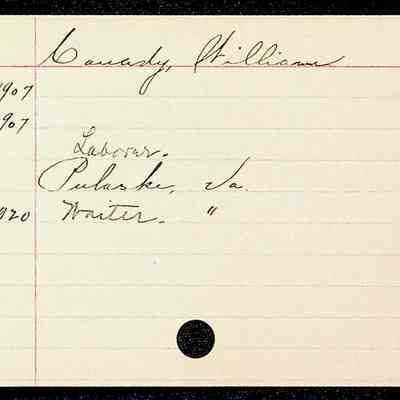 Canady, William
1907
1907
Laborer.
Pulaski, Va.
1920 Waiter. "